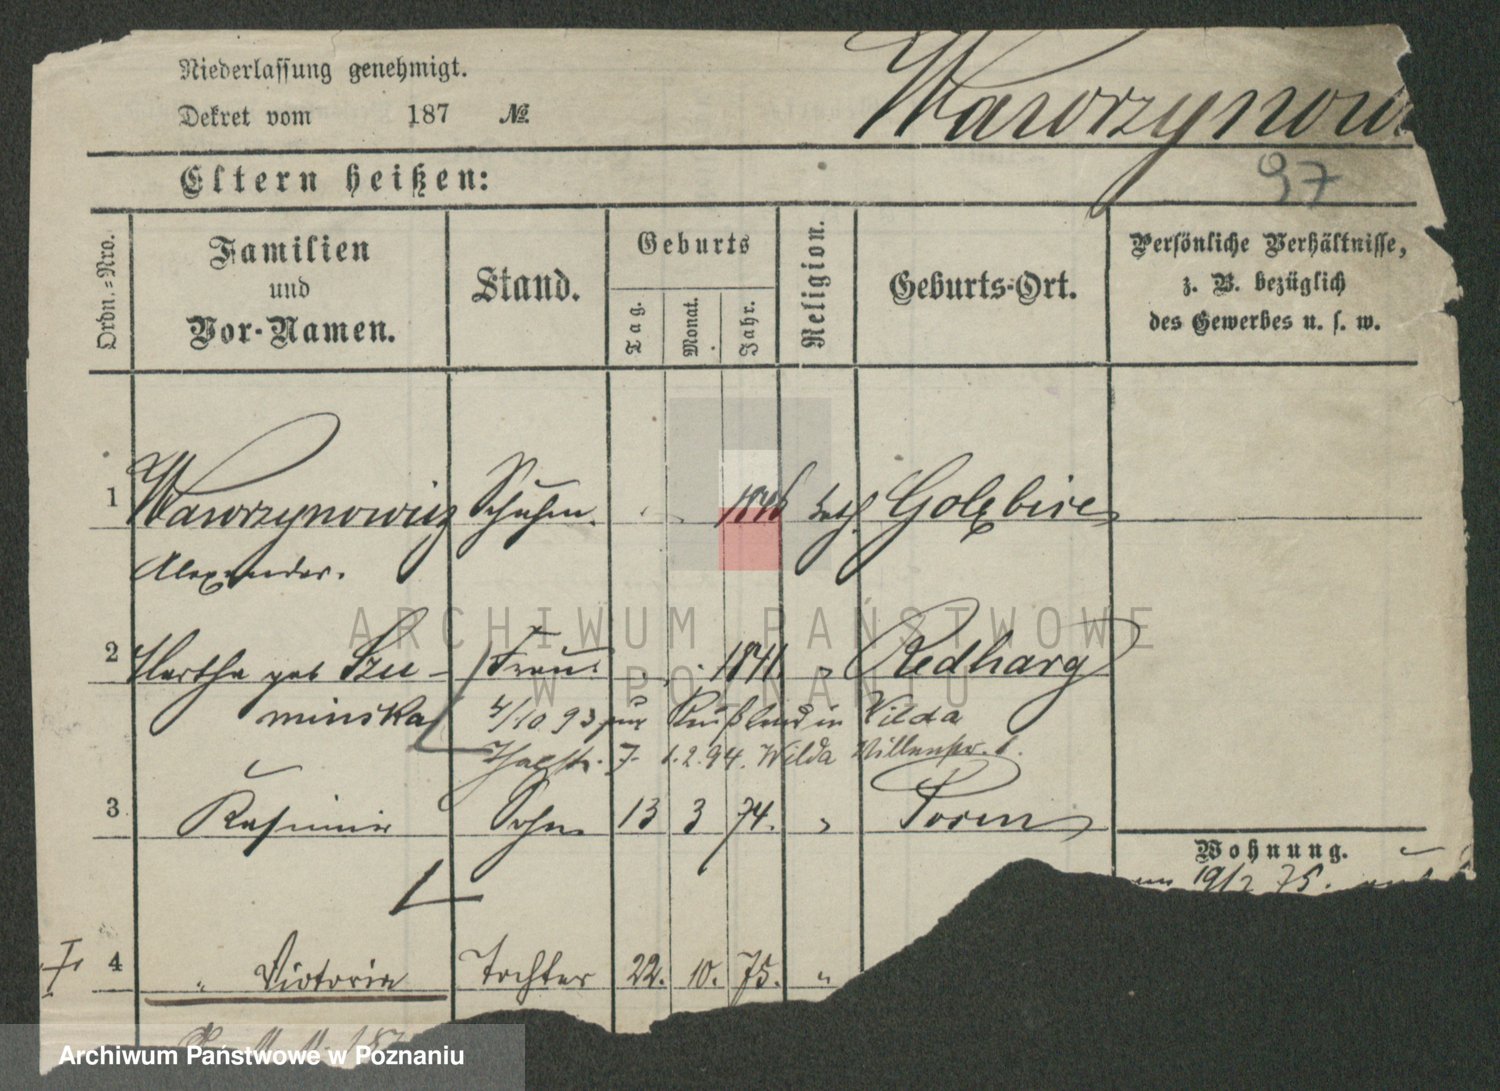 Niederlassung genehmigt.
Dekret vom 187 №.
Wawrzynow
97
Eltern heißen:
Ordn.-Nro.
Familien
und
Vor-Namen.
Stand.
Geburts
Tag.
Monat.
Jahr.
Religion.
Geburts-Ort.
Persönliche Verhältnisse,
z. B. bezüglich
des Gewerbes u. s. w.
1 Wawrzynowicz Schuhm. 1846 kath.
Alexander.
2 Martha geb Szu- Frau 1841 " Redharz
minska 4/10 93 nur in Wilda
Thalstr. 7. 1.2.94. Wilda Villenstr.
3 Kasimir Sohn 13 3 74. " Posen
Wohnung.
19/2 75.
4 " Victoria Tochter 22. 10. 75. "
ARCHIWUM PAŃSTWOWE
W POZNANIU
Archiwum Państwowe w Poznaniu